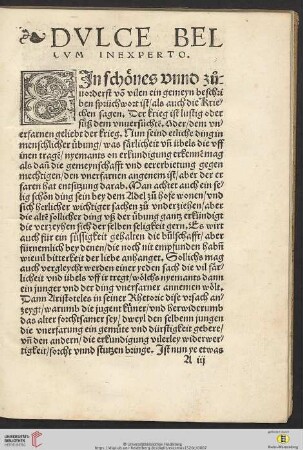 DVLCE BEL
LVM INEXPERTO.
Ein schönes vnnd zů
uorderst võ vilen ein gemeyn beschri
ben sprüchwort ist/ als auch die Krie
chen sagen. Der krieg ist lustig oder
süß dem vnuersüchtẽ. Oder/ dem vn
erfarnen geliebt der krieg. Nun seind etliche ding in
menschlicher übung/ was färlicheit vñ übels die vff
inen tragẽ/ nyemants on erkundigung erkennẽ mag
als dañ die gemeynschafft vnd ererbietung gegen
mechtigen/ den vnerfarnen angenem ist/ aber der er
faren hat entsitzung darab. Man achtet auch ein se/
lig schön ding sein bey dem Adel zů hofe wonen/ vnd
sich herrlicher wichtiger sachen zů vnderziehen/ aber
die altẽ sollicher ding vß der übung gantz erkündigt
die verzeyhen sich der selben seligkeit gern. Es würt
auch für ein süssigkeit gehalten die bůlschafft/ aber
fürnemlich bey denen/ die noch nit empfunden habñ
wieuil bitterkeit der liebe anhanget. Sollichs mag
auch vergleycht werden einer yeden sach die vil fär/
licheit vnd übels vff ir tregt/ wölchs nyemants dann
ein junger vnd der ding vnerfarner annemen wölt.
Dann Aristoteles in seiner Rhetoric dise vrsach an/
zeygt/ warumb die jugent küner/ vnd herwiderumb
das alter forchtsamer sey/ dweyl den selben jungen
die vnerfarung ein gemüte vnd dürstigkeit gebere/
vñ den andern/ die erkündigung vilerley widerwer/
tigkeit/ forcht vnnd stutzen bringe. Ist nun ye etwas
A iij